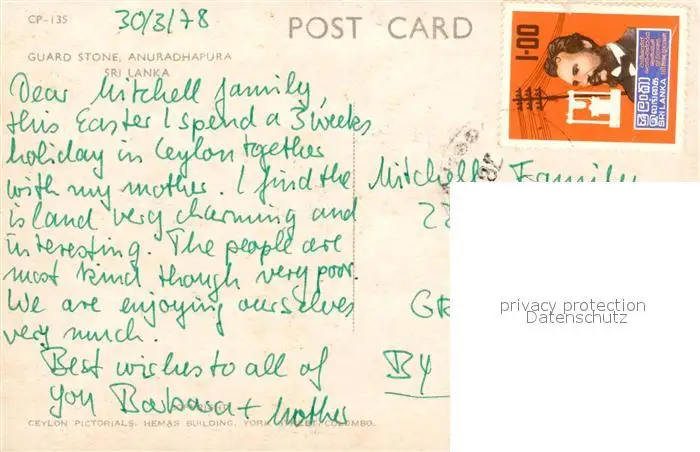 CP-135
30/3/78
POST CARD
GUARD STONE, ANURADHAPURA
SRI LANKA
1-00
SRI LANKA
Dear Mitchell family,
this Easter I spend a 3 weeks
holiday in Ceylon together
with my mother. I find the
island very charming and
interesting. The people are
most kind though very poor.
We are enjoying ourselves
very much.
Best wishes to all of
you Barbara + Mother
Mitchell Family
GR
By
CEYLON PICTORIALS, HEMAS BUILDING, YORK STREET, COLOMBO.
privacy protection
Datenschutz